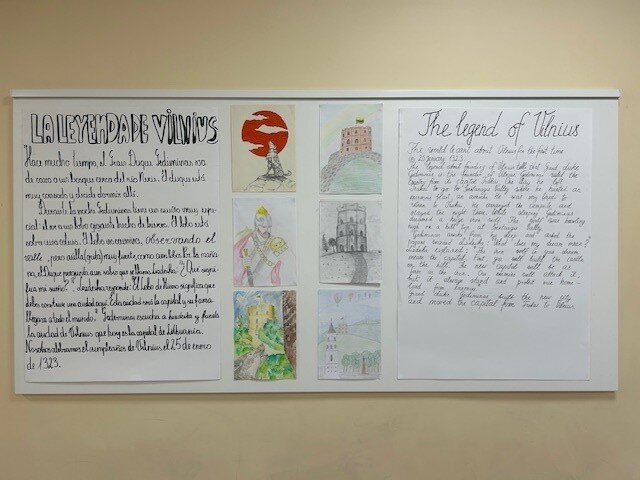 LA LEYENDA DE VILNIUS
Hace mucho tiempo, el Gran Duque Gediminas va
de caza a un bosque cerca del río Neris. El duque está
muy cansado y decide dormir allí.
Durante la noche Gediminas tiene un sueño muy espe-
cial: él ve a un lobo grande hecho de hierro. El lobo está
sobre una colina. El lobo no camina, observando el
valle, pero aúlla (guía) muy fuerte, como cien lobos. Por la maña-
na, el Duque pregunta a un sabio que se llama Lizdeika: "¿Qué sig-
fica mi sueño?". Lizdeika responde: "El lobo de hierro significa que
debes construir una ciudad aquí. Esta ciudad será la capital y su fama
llegará a todo el mundo." Gediminas escucha a Lizdeika y funda
la ciudad de Vilnius que hoy es la capital de Lithuania.
Nosotros celebramos el cumpleaños de Vilnius el 25 de enero
de 1323.
The legend of Vilnius
The world learnt about Vilnius for the first time
in 25 January 1323.
The legend about founding of Vilnius tells that grand duke
Gediminas is the founder of Vilnius. Gediminas ruled the
country from the
Trakai to go to
he was very
to Trakai. He arranged the campsite and
stayed the night there. While sleeping Gediminas
dreamed a huge iron wolf. The wolf was howling
high on a hill top at
Gediminas awoke from his sleep and asked the
pagan priest Lizdeika: "What does my dream mean?"
Lizdeika explained: "The iron wolf in your dream
means the capital, that you will build the castle
on the hill. The new capital will be as
iron in the
but it always stand and protect our home-
land from enemies."
Grand duke Gediminas built the new city
and moved the capital from Trakai to Vilnius.